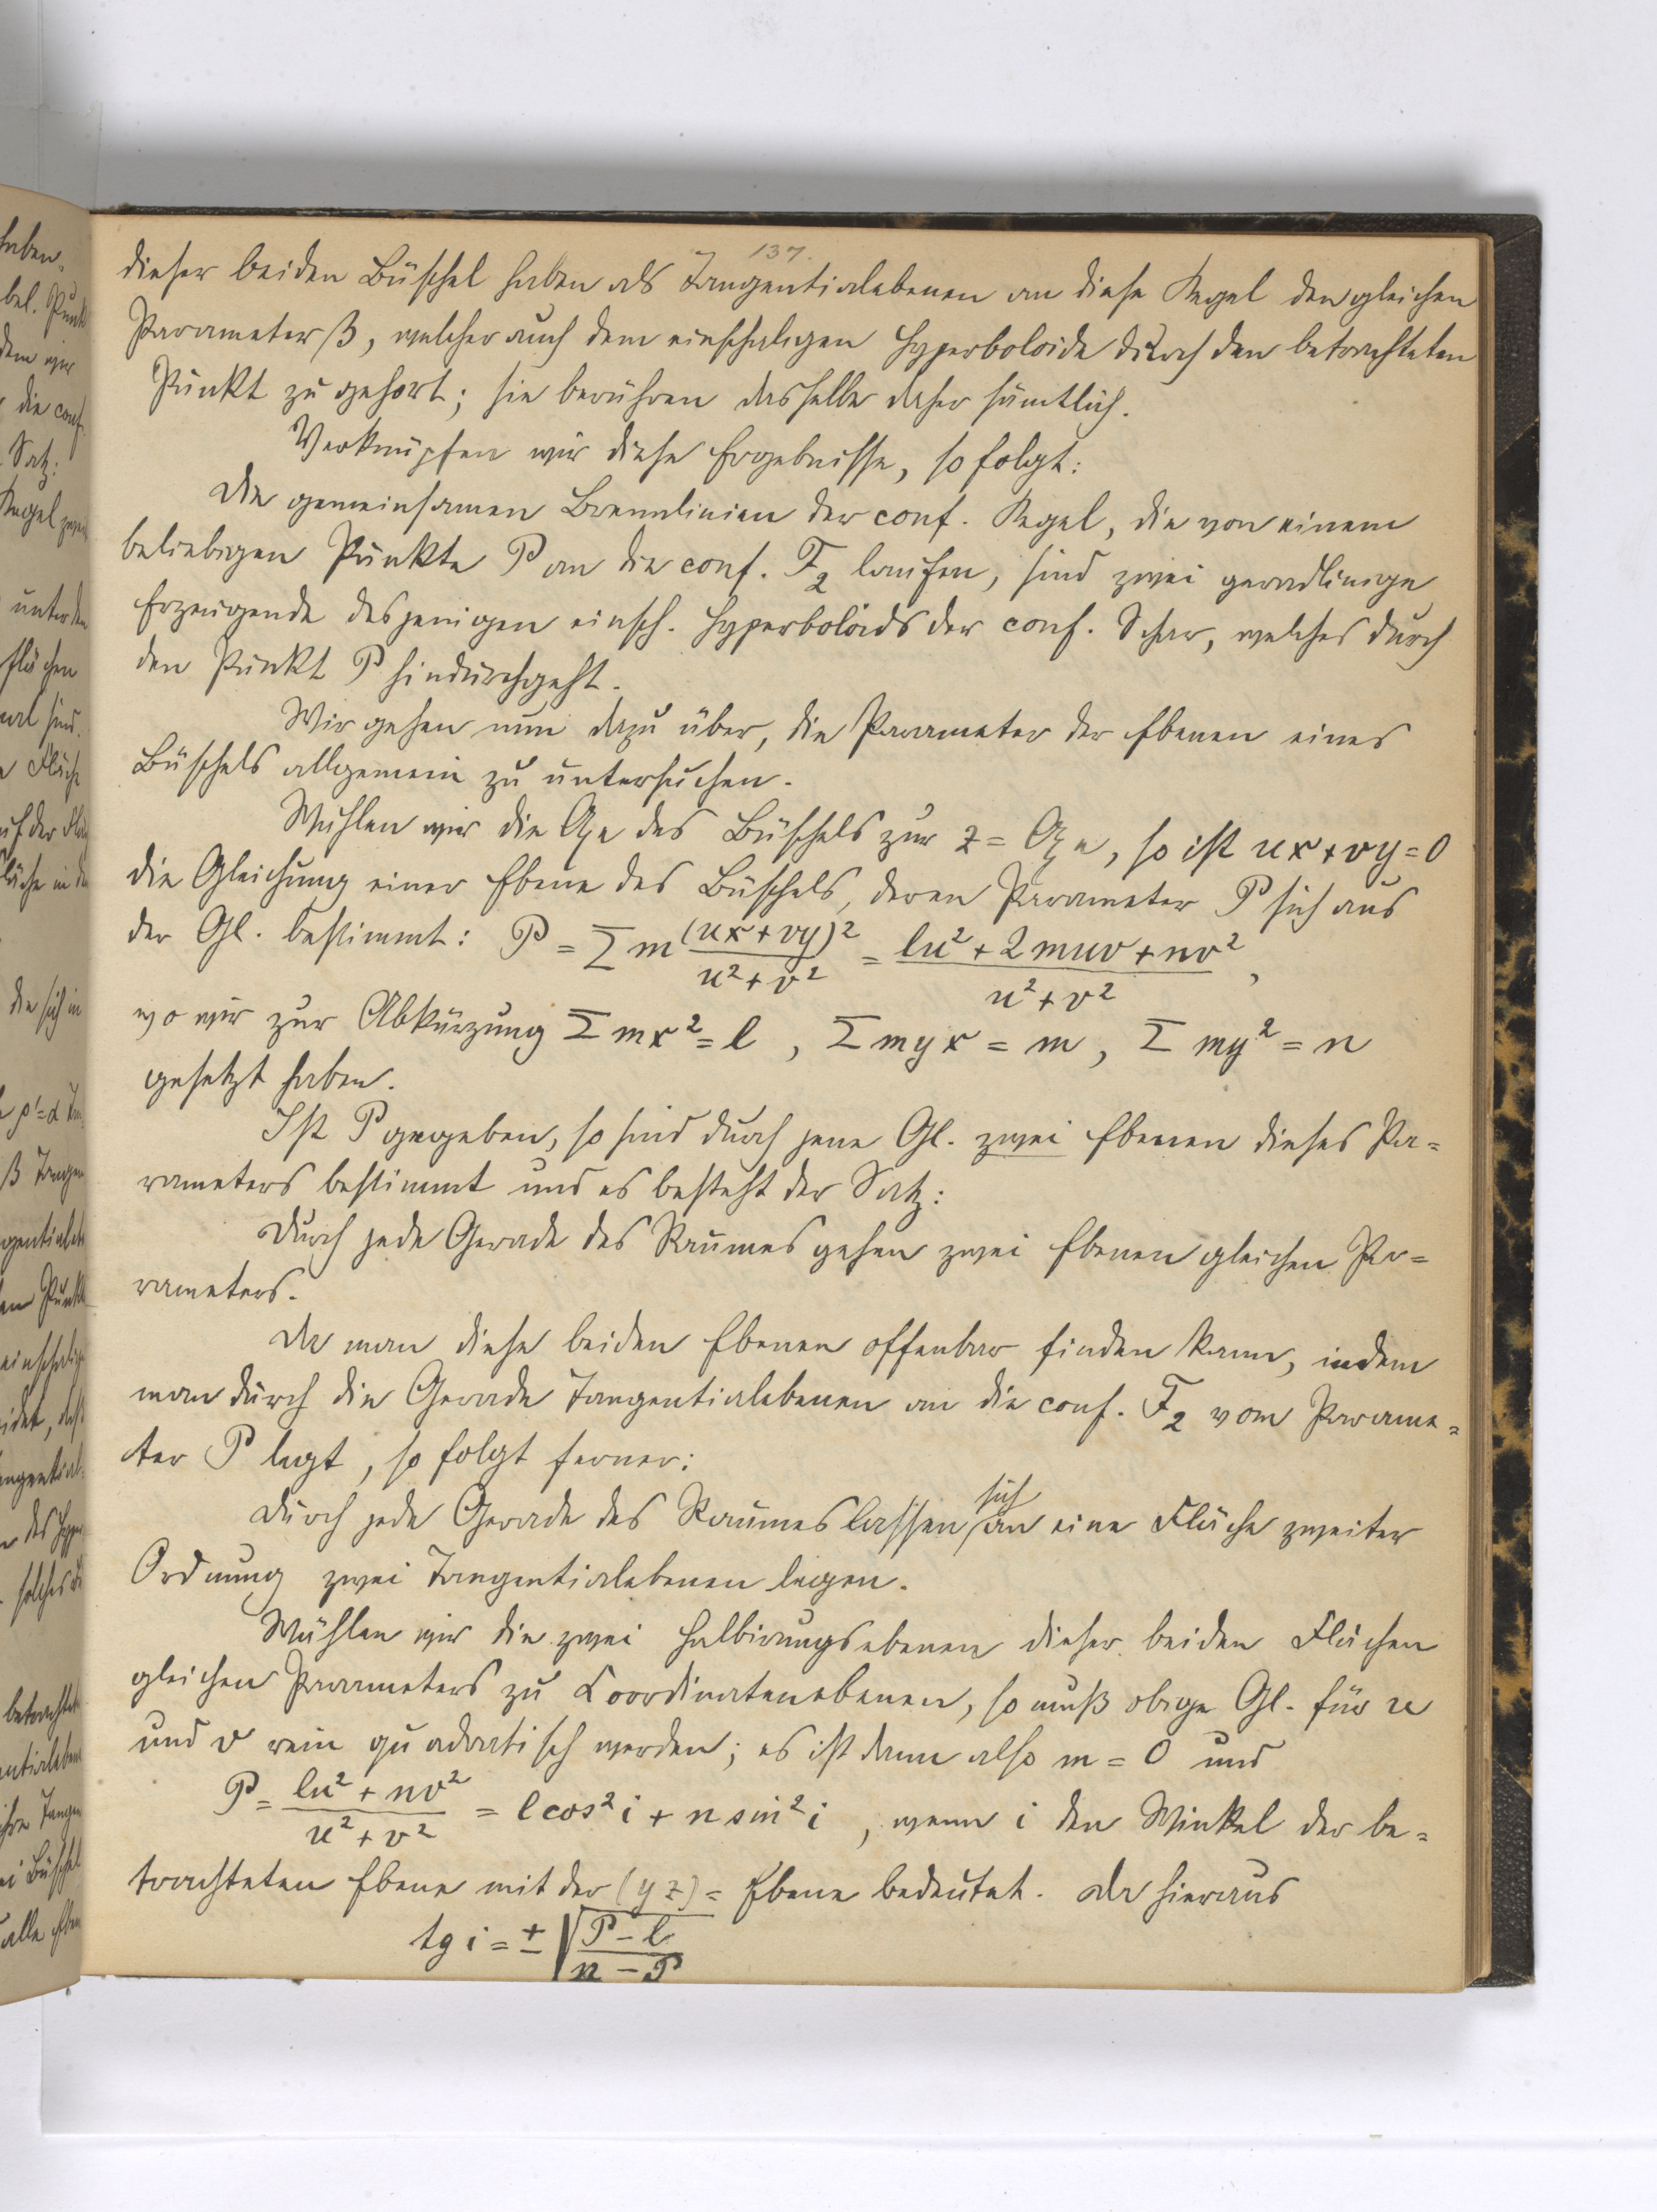 137.
dieser beiden Büschel haben als Tangentialebenen an diese Kegel den gleichen
Parameter ß, welcher auch dem einschaligen Hyperboloide durch den betrachteten
Punkt zu gehört; sie berühren dasselbe daher sämtlich.
Verknüpfen wir diese Ergebnisse, so folgt:
Die gemeinsamen Brennlinien der conf. Kegel, die von einem
beliebigen Punkte P an die conf. F₂ laufen, sind zwei geradlinige
Erzeugende desjenigen einsch. Hyperboloids der conf. Schar, welches durch
den Punkt P hindurchgeht.
Wir gehen nun dazu über, die Parameter der Ebenen eines
Büschels allgemein zu untersuchen.
Wählen wir die Axe des Büschels zur z = Axe, so ist ux+vy=0
die Gleichung einer Ebene des Büschels, deren Parameter P sich aus
der Gl. bestimmt: P = Σ m (ux+vy)²/(u²+v²) = (lu²+2muv+nv²)/(u²+v²),
wo wir zur Abkürzung Σ mx² = l, Σ myx = m, Σ my² = n
gesetzt haben.
Ist P gegeben, so sind durch jene Gl. zwei Ebenen dieses Pa=
rameters bestimmt und es besteht der Satz:
Durch jede Gerade des Raumes gehen zwei Ebenen gleichen Pa=
rameters.
Da man diese beiden Ebenen offenbar finden kann, indem
man durch die Gerade Tangentialebenen an die conf. F₂ vom Parame=
ter P legt, so folgt ferner:
Durch jede Gerade des Raumes lassen sich an eine Fläche zweiter
Ordnung zwei Tangentialebenen legen.
Wählen wir die zwei Halbirungsebenen dieser beiden Flächen
gleichen Parameters zu Coordinatenebenen, so muß obige Gl. für u
und v rein quadratisch werden; es ist dann also m = 0 und
P = (lu²+nv²)/(u²+v²) = l cos² i + n sin² i, wenn i den Winkel der be=
trachteten Ebene mit der (yz) = Ebene bedeutet. Da hieraus
tg i = ± √((P−l)/(n−P))